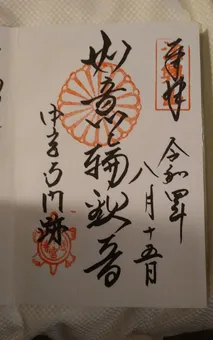 奉拝
令和四年
八月十五日
如意輪観音
中宮寺門跡